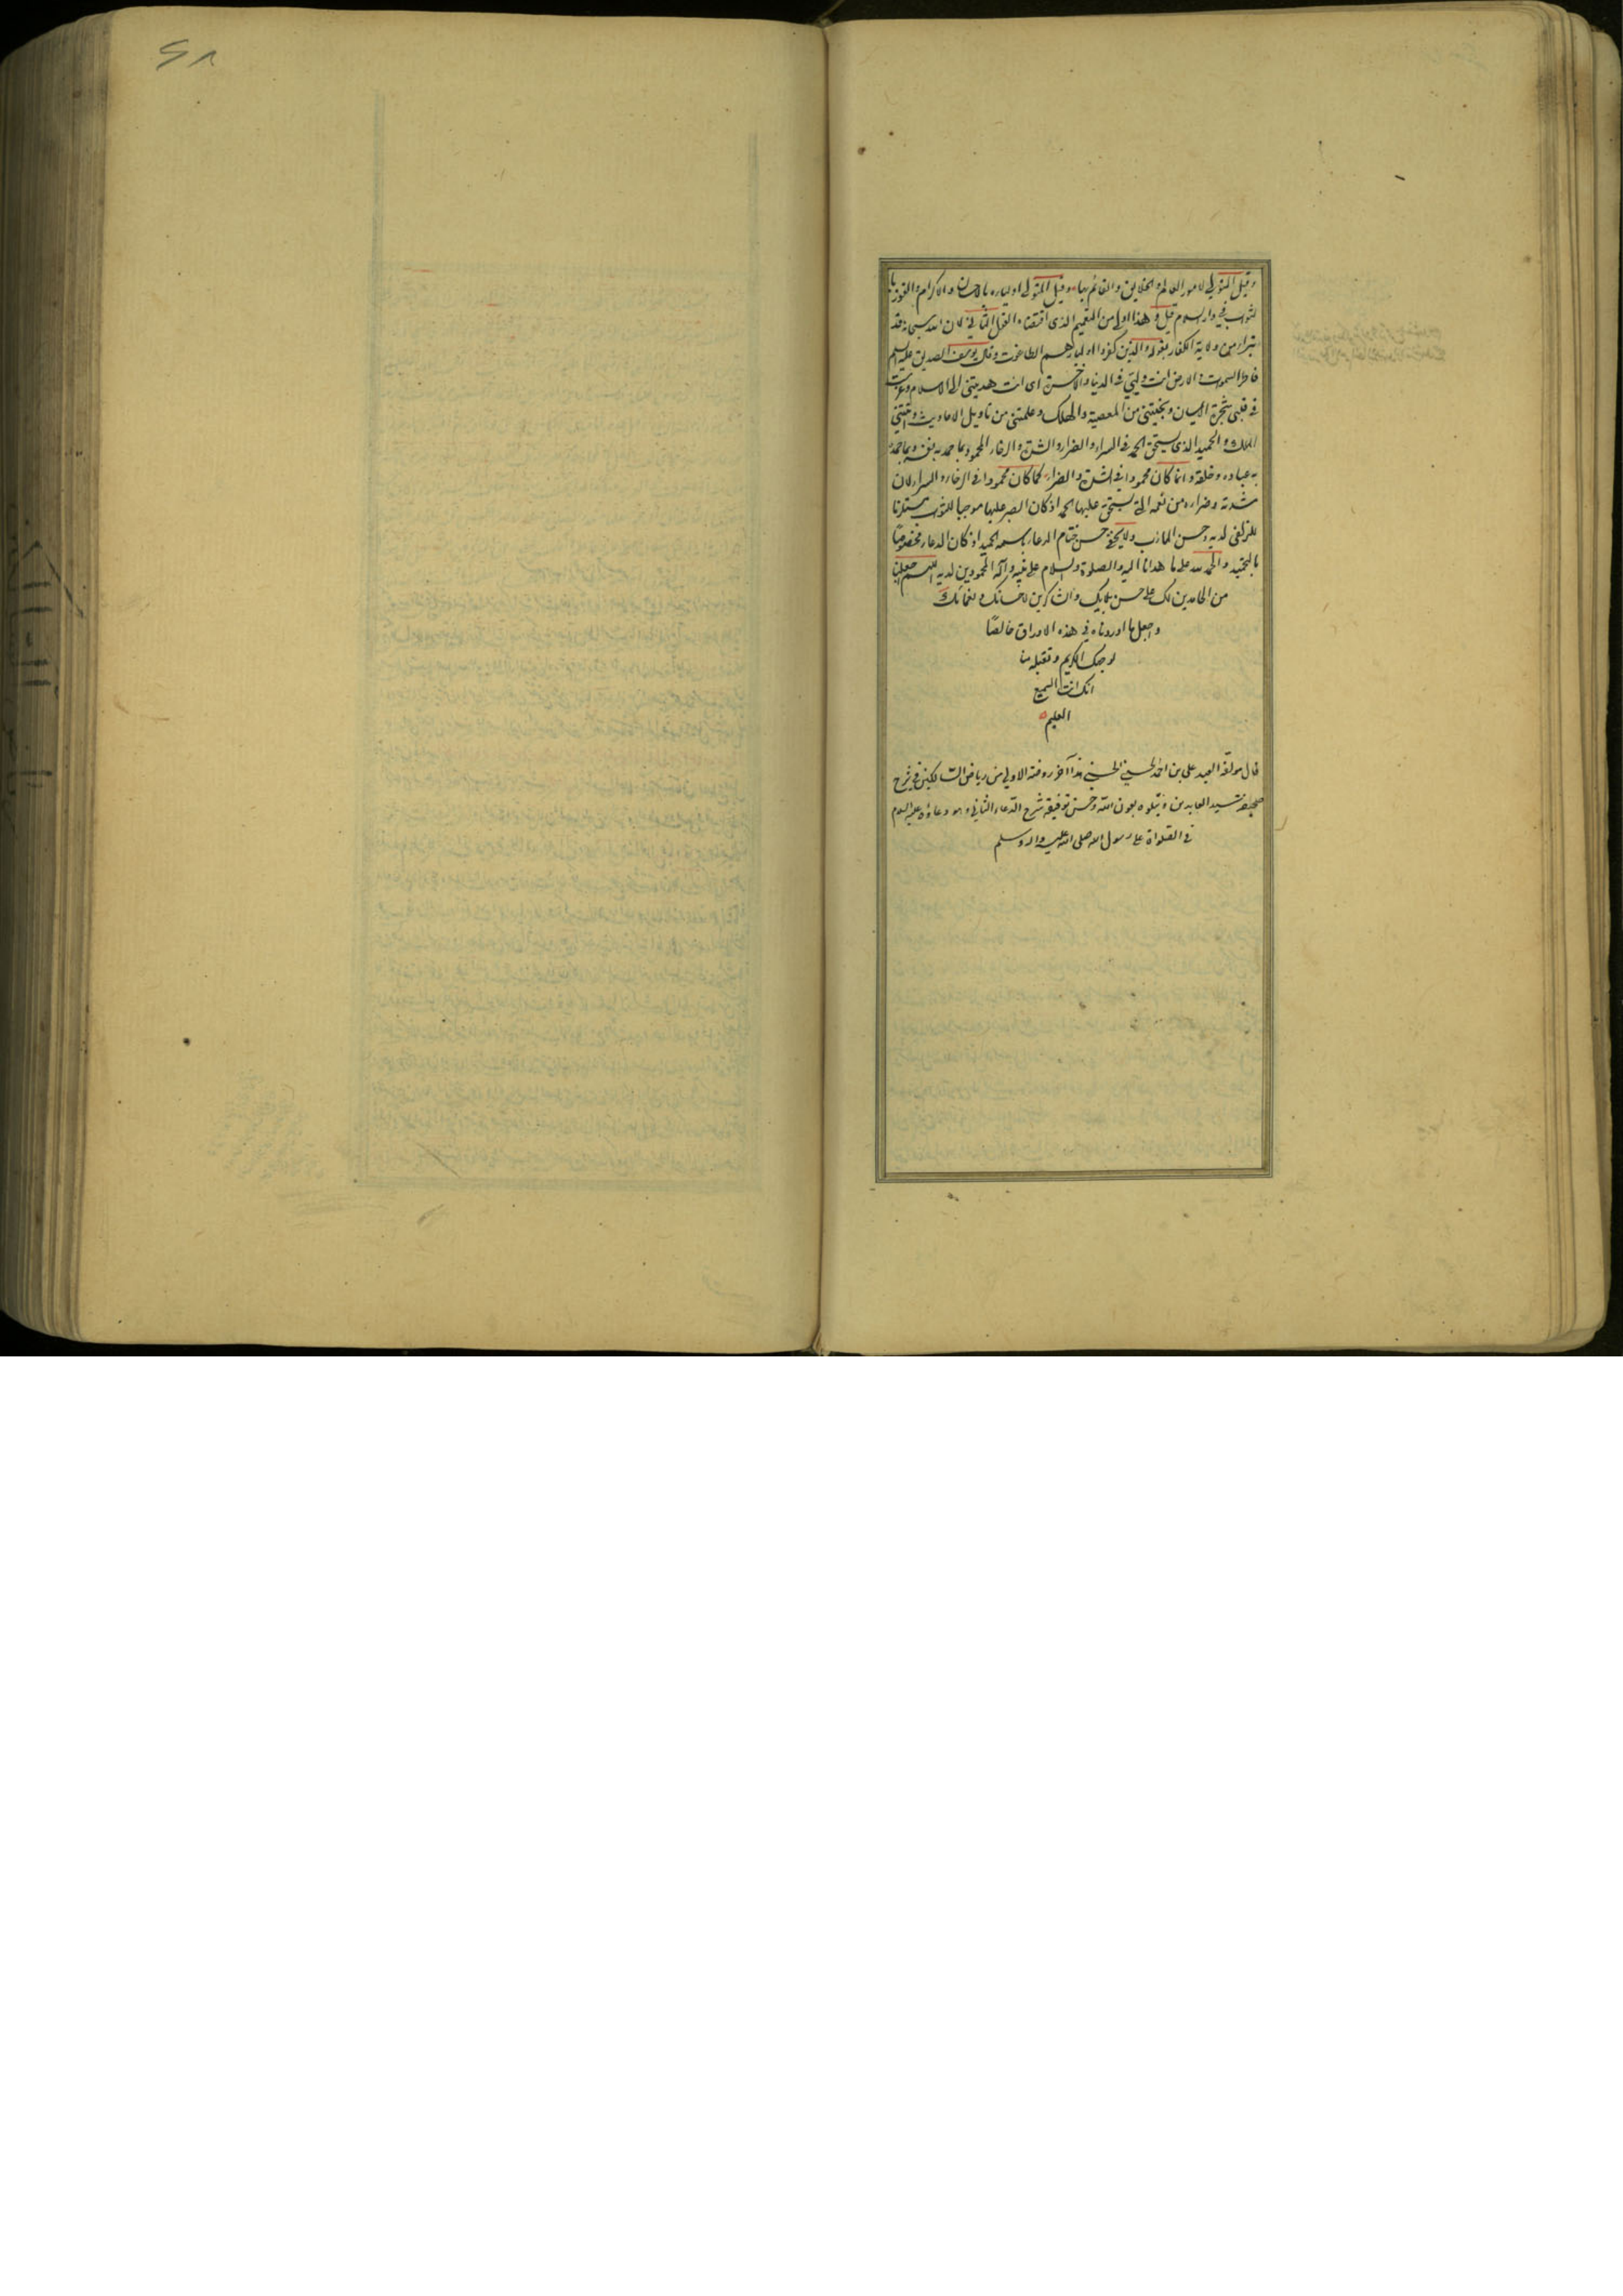 وقيل المتولى لامور العالم والخلايق والقائم بها وقيل المتولى اولياءه بالاحسان والاكرام والفوز با
لثواب في دار السلام قيل وهذا اولى من التعميم الذى اقتضاه القول الثاني لان الله سبحانه قد
تبرا من ولاية الكفار بقوله والذين كفروا اولياؤهم الطاغوت وقال يوسف الصديق عليه السلم
فاطر السموات والارض انت وليي في الدنيا والاخرة اى انت هديتنى الى الاسلام وغرست
في قلبى شجرة الايمان ونجيتنى من المعصية والهلاك وعلمتنى من تاويل الاحاديث واتيتني
الملك والحميد الذى يستحق الحمد في السراء والضراء والشدة والرخاء المحمود بما حمد به نفسه وبما حمده
به عباده وخلقه وانما كان محمودا في الشدة والضراء كما كان محمودا في الرخاء والسراء لان
شدته وضراءه من نعمه التى يستحق عليها الحمد اذ كان الصبر عليها موجبا للثواب مستلزما
للزلفى لديه وحسن الماب ولا يخفى حسن ختام الدعاء باسمه الحميد اذ كان الدعاء مخصوصا
بالتحميد والحمد لله على ما هدانا اليه والصلوة والسلام على نبيه وآله المحمودين لديه اللهم اجعلنا
من الحامدين لك على حسن بلائك والشاكرين لاحسانك ونعمائك
واجعل ما اوردناه في هذه الاوراق خالصًا
لوجهك الكريم وتقبله منا
انك انت السميع
العليم
قال مؤلفه العبد علي بن احمد الحسيني الحسني هذا آخر روضة الاولى من رياض السالكين في شرح
صحيفة سيد العابدين ويتلوه بعون الله وحسن توفيقه شرح الدعاء الثاني وهو دعاؤه عليه السلام
في الصلواة على رسول الله صلى الله عليه واله وسلم